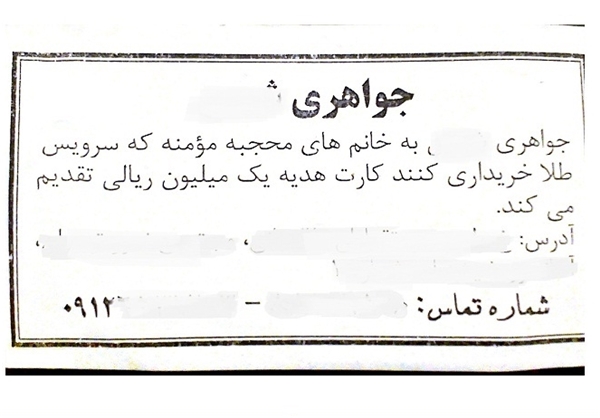 جواهری
جواهری به خانم های محجبه مؤمنه که سرویس
طلا خریداری کنند کارت هدیه یک میلیون ریالی تقدیم
می کند.
آدرس:
شماره تماس: – ۰۹۱۲